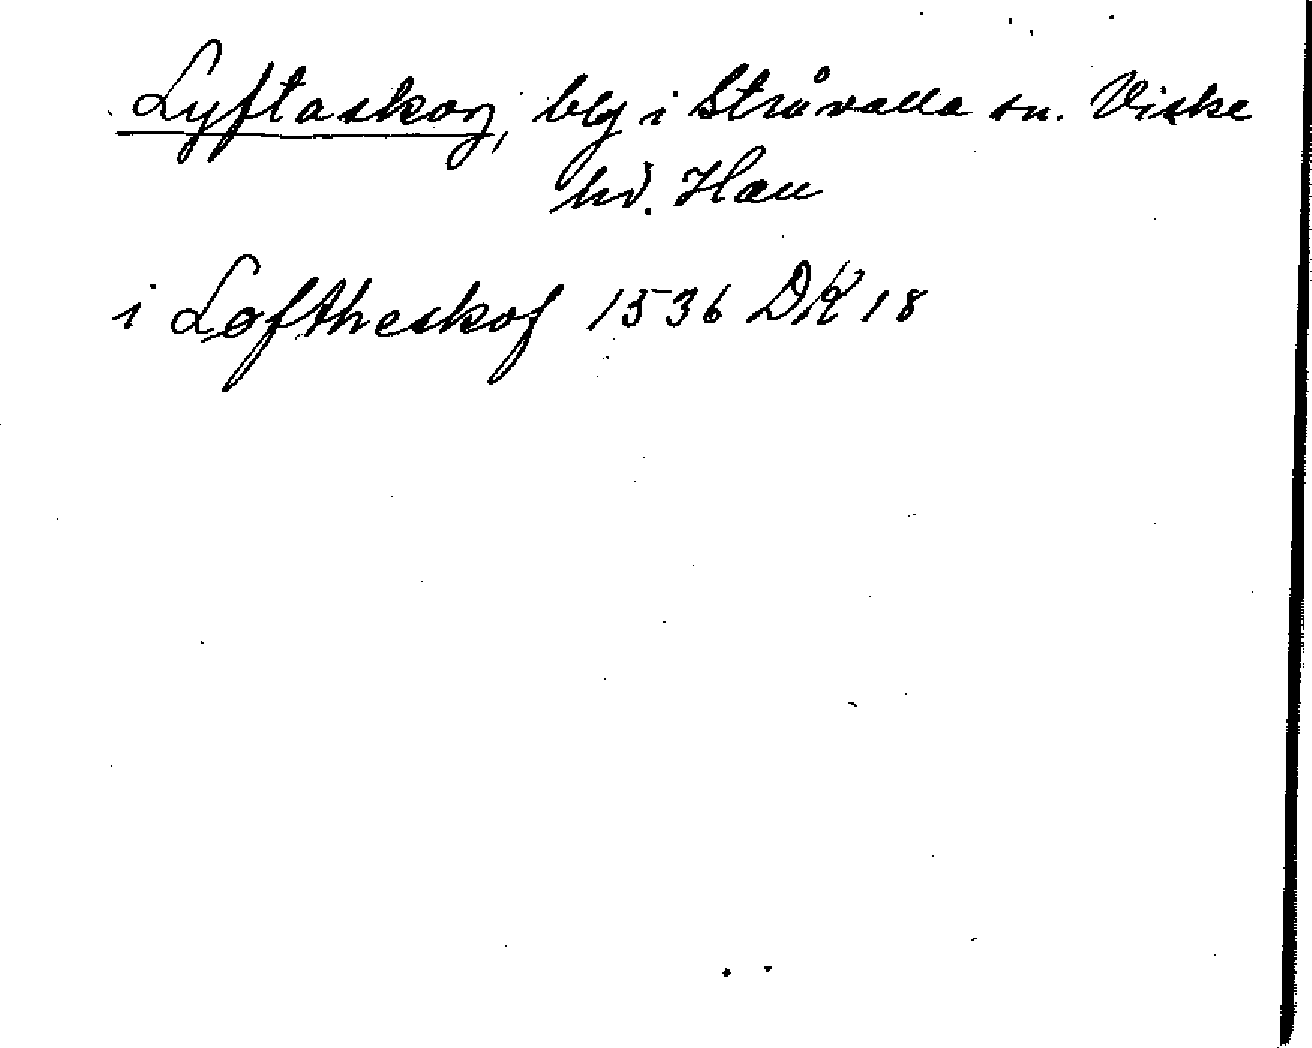 Lyftaskog, blg i Stråvalla sn. Viske
hd. Hall
i Løftheskof 1536 DK 18